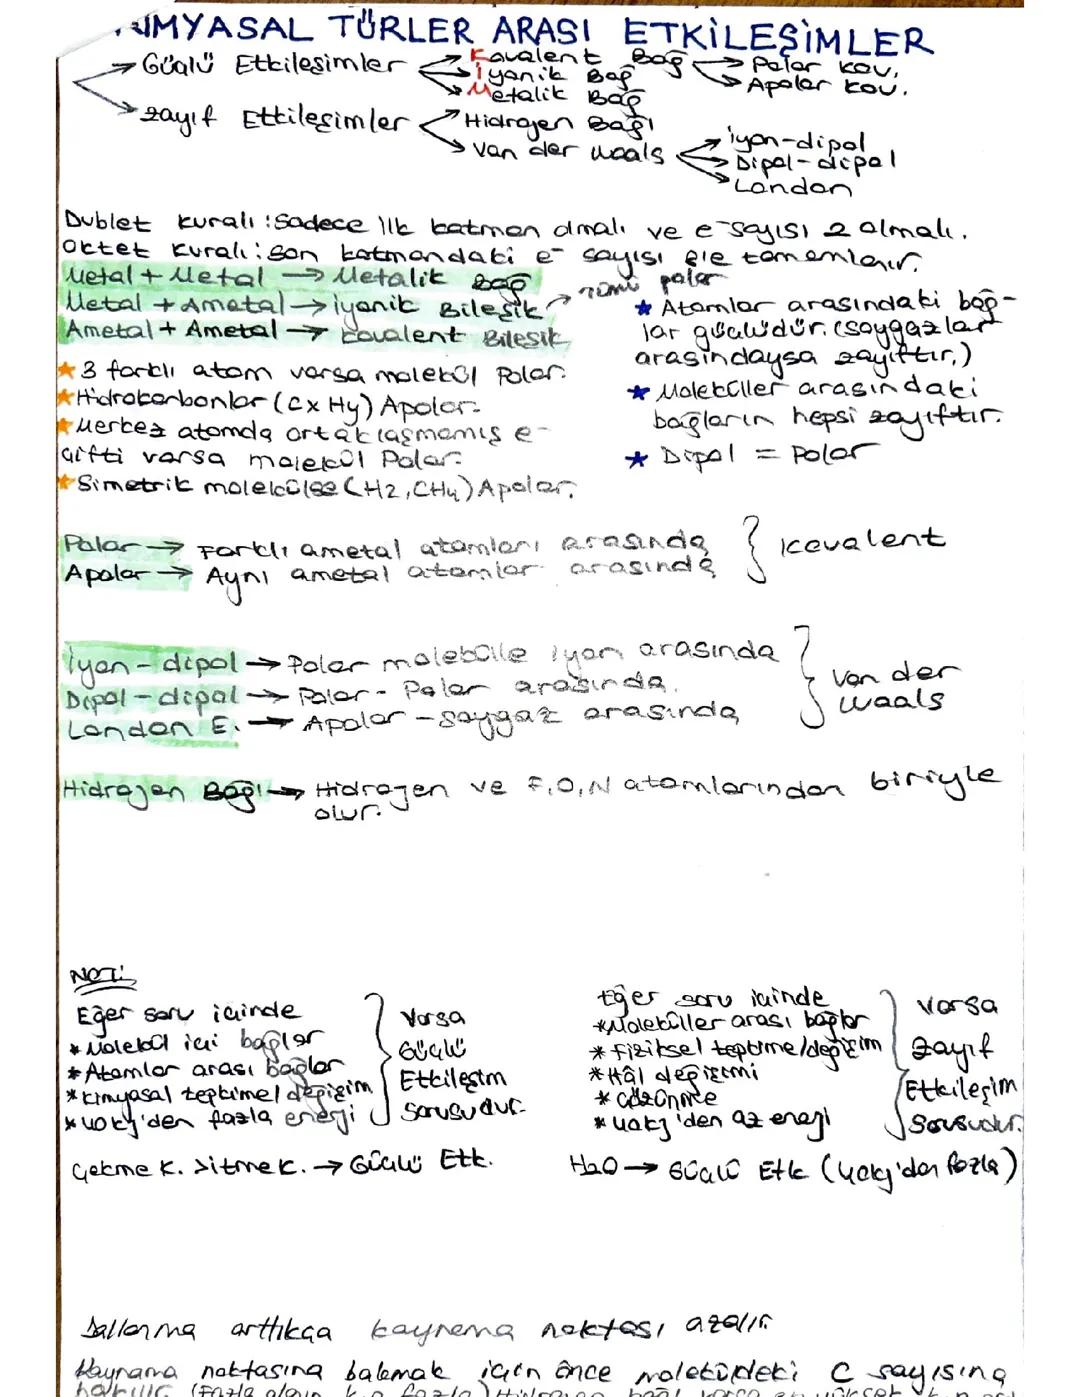 KİMYASAL TÜRLER ARASI ETKİLEŞİMLER
Güçlü Etkileşimler
Kovalent Bağ
Polar kov.
Apolar kov.
İyonik Bağ
Metalik Bağ
Zayıf Etkileşimler
Hidrojen Bağı
Van der Waals
İyon-dipol
Dipol-dipol
London
Dublet Kuralı: Sadece ilk katman olmalı ve e- sayısı 2 olmalı.
Oktet Kuralı: Son katmandaki e- sayısı 8'e tamamlanır.
Metal + Metal → Metalik Bağ
Metal + Ametal → İyonik Bileşik → tümü polar
Ametal + Ametal → Kovalent Bileşik
★ 3 farklı atom varsa molekül Polar.
★ Hidrokarbonlar (CxHy) Apolar.
★ Merkez atomda ortaklaşmamış e-
çifti varsa molekül Polar.
★ Simetrik molekülse (H2, CH4) Apolar.
★ Atomlar arasındaki bağ-
lar güçlüdür. (soygazlar
arasındaysa zayıftır.)
★ Moleküller arasındaki
bağların hepsi zayıftır.
★ Dipol = Polar
Polar → Farklı ametal atomları arasında
Apolar → Aynı ametal atomlar arasında
} Kovalent
İyon-dipol → Polar molekülle iyon arasında
Dipol-dipol → Polar-Polar arasında.
London E. → Apolar-soygaz arasında
} Van der
Waals
Hidrojen Bağı → Hidrojen ve F,O,N atomlarından biriyle
olur.
NOT:
Eğer soru içinde
* Molekül içi bağlar
* Atomlar arası bağlar
* Kimyasal tepkime/değişim
* 40 kj'den fazla enerji
} Varsa
Güçlü
Etkileşim
Sorusudur.
Çekme K. > İtme K. → Güçlü Etk.
Eğer soru içinde
* Moleküller arası bağlar
* Fiziksel tepkime/değişim
* Hâl değişimi
* Çözünme
* 40 kj'den az enerji
} Varsa
Zayıf
Etkileşim
Sorusudur.
H2O → Güçlü Etk (40 kj'den fazla)
Dallanma arttıkça kaynama noktası azalır.
Kaynama noktasına bakmak için önce moleküldeki C sayısına